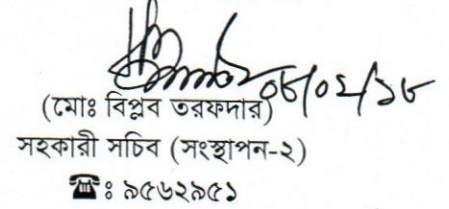 ০৮/০২/১৮
(মোঃ বিপ্লব তরফদার)
সহকারী সচিব (সংস্থাপন-২)
☎ঃ ৯৫৬২৯৫১